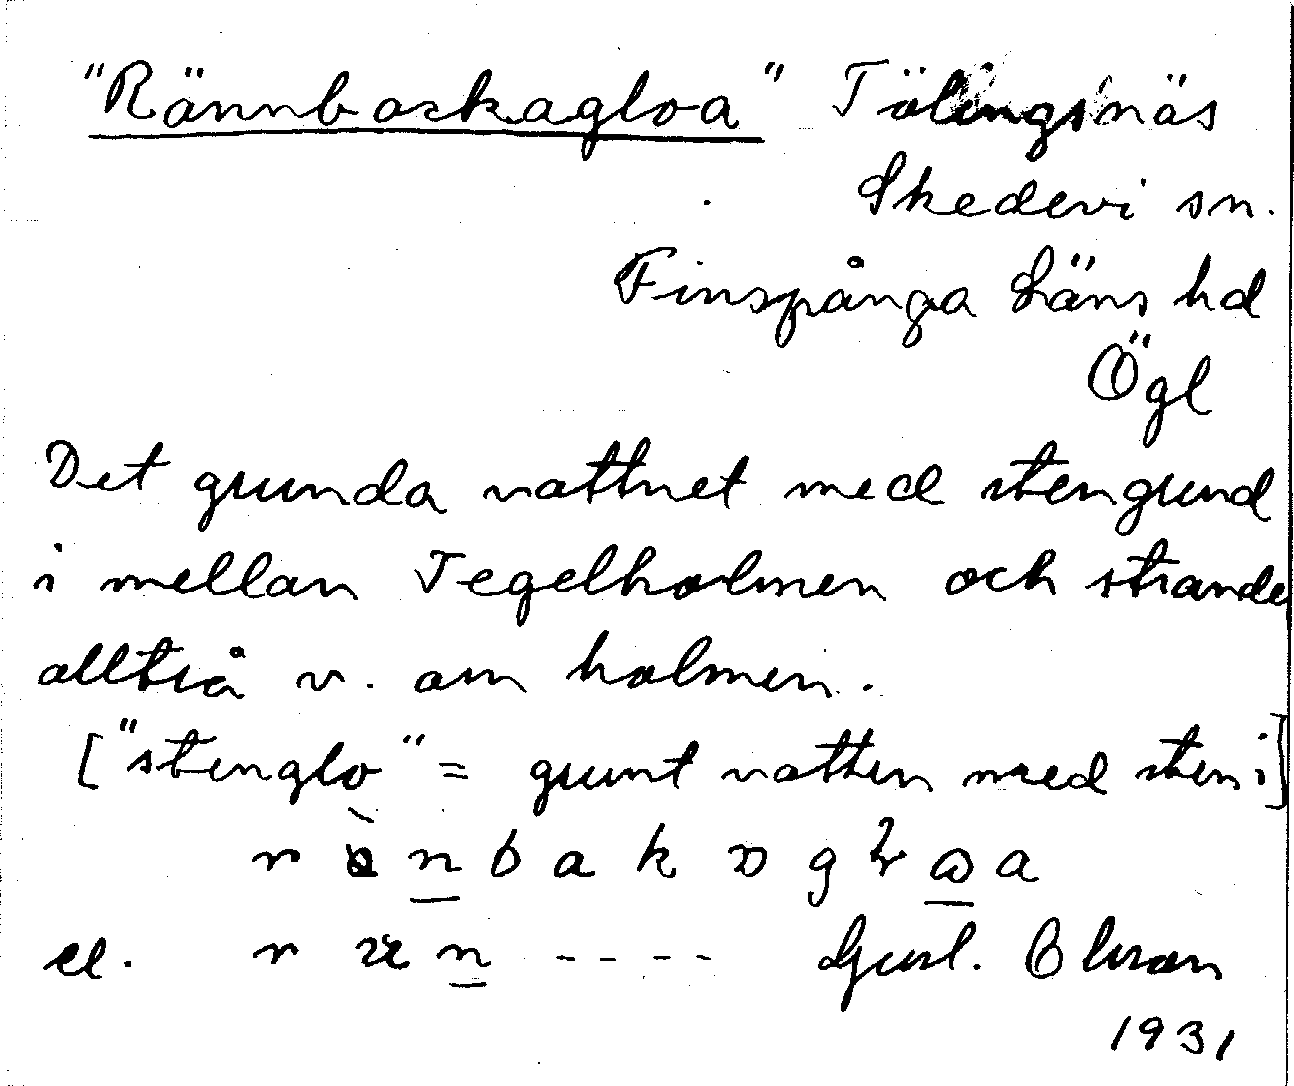 "Rännbackagloa" Tälingsnäs
Skedevi sn.
Finspånga läns hd
Ögl
Det grunda vattnet med stengrund
i mellan Tegelholmen och strande
alltså v. om holmen.
["stenglo" = grunt vatten med sten i]
el. - - - - Gust. Ohlson
1931